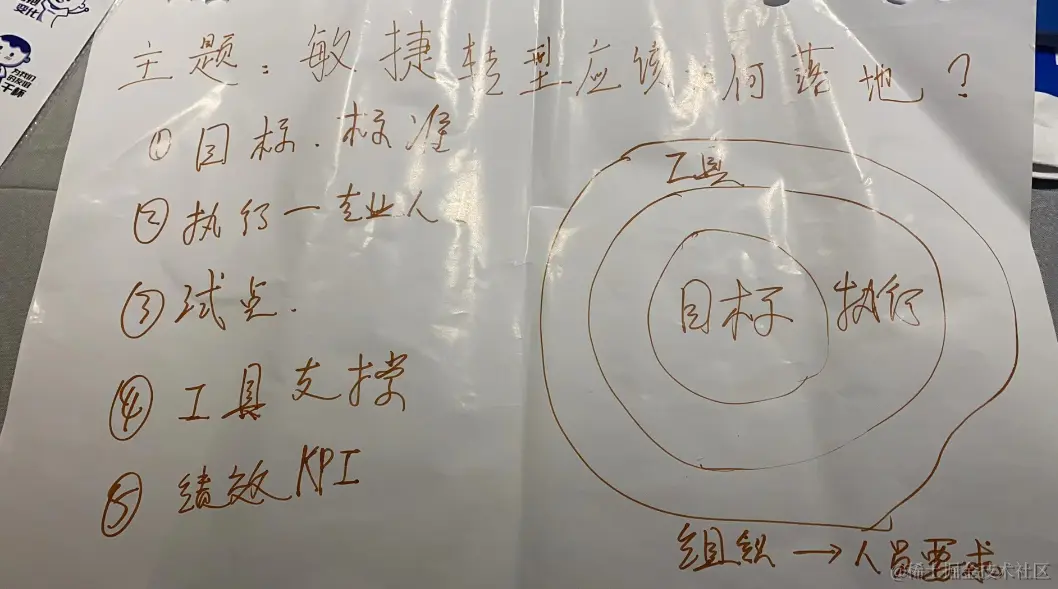 变化
为我们
的友谊
干杯
主题：敏捷转型应该如何落地？
① 目标．标准
② 执行一专业人
③ 试点．
④ 工具支撑
⑤ 绩效KPI
工具
目标
执行
组织→人员要求
@稀土掘金技术社区